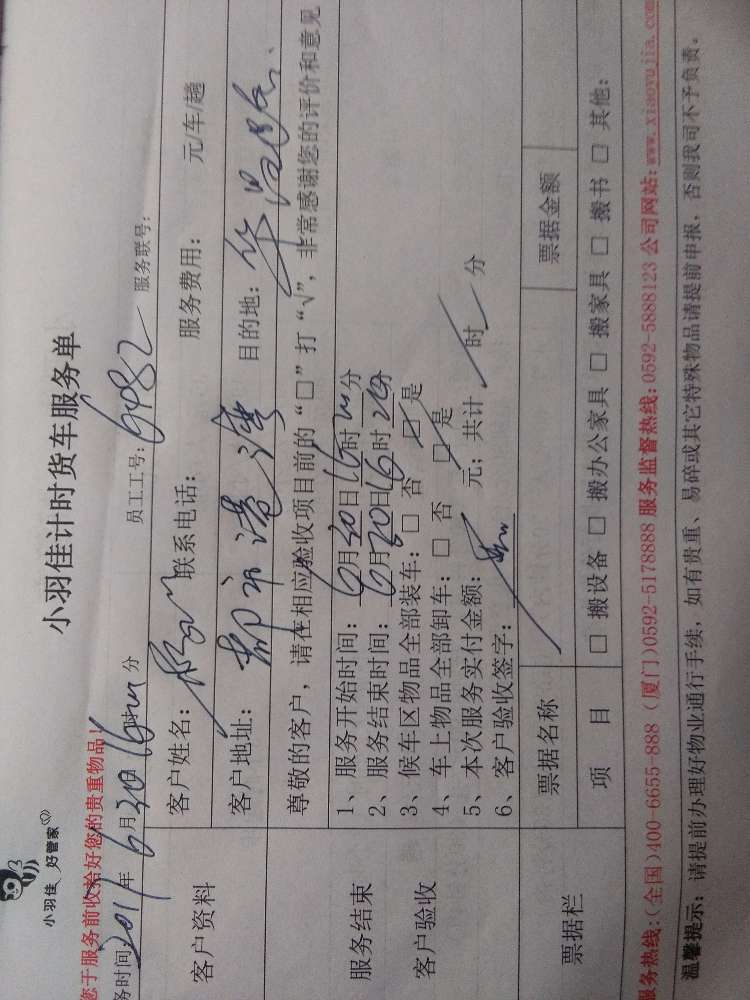 小羽佳 好管家
小羽佳计时货车服务单
您于服务前收拾好您的贵重物品!
务时间 2011年6月30 16时 分 员工工号: 6982 服务联号:
客户资料
客户姓名: 联系电话: 服务费用: 元/车/趟
客户地址: 都市港湾 目的地:
尊敬的客户，请在相应验收项目前的“□”打“√”，非常感谢您的评价和意见
服务结束
客户验收
1、服务开始时间: 6月30日16时 分
2、服务结束时间: 6月30日16时20分
3、候车区物品全部装车: □ 否 □ 是
4、车上物品全部卸车: □ 否 □ 是
5、本次服务实付金额: 元; 共计 时 分
6、客户验收签字:
票据栏
票据名称 票据金额
项 目 □ 搬设备 □ 搬办公家具 □ 搬家具 □ 搬书 □ 其他:
服务热线:(全国)400-6655-888 (厦门)0592-5178888 服务监督热线:0592-5888123 公司网站:www.xiaoyujia.com
温馨提示: 请提前办理好物业通行手续，如有贵重、易碎或其它特殊物品请提前申报，否则我司不予负责。